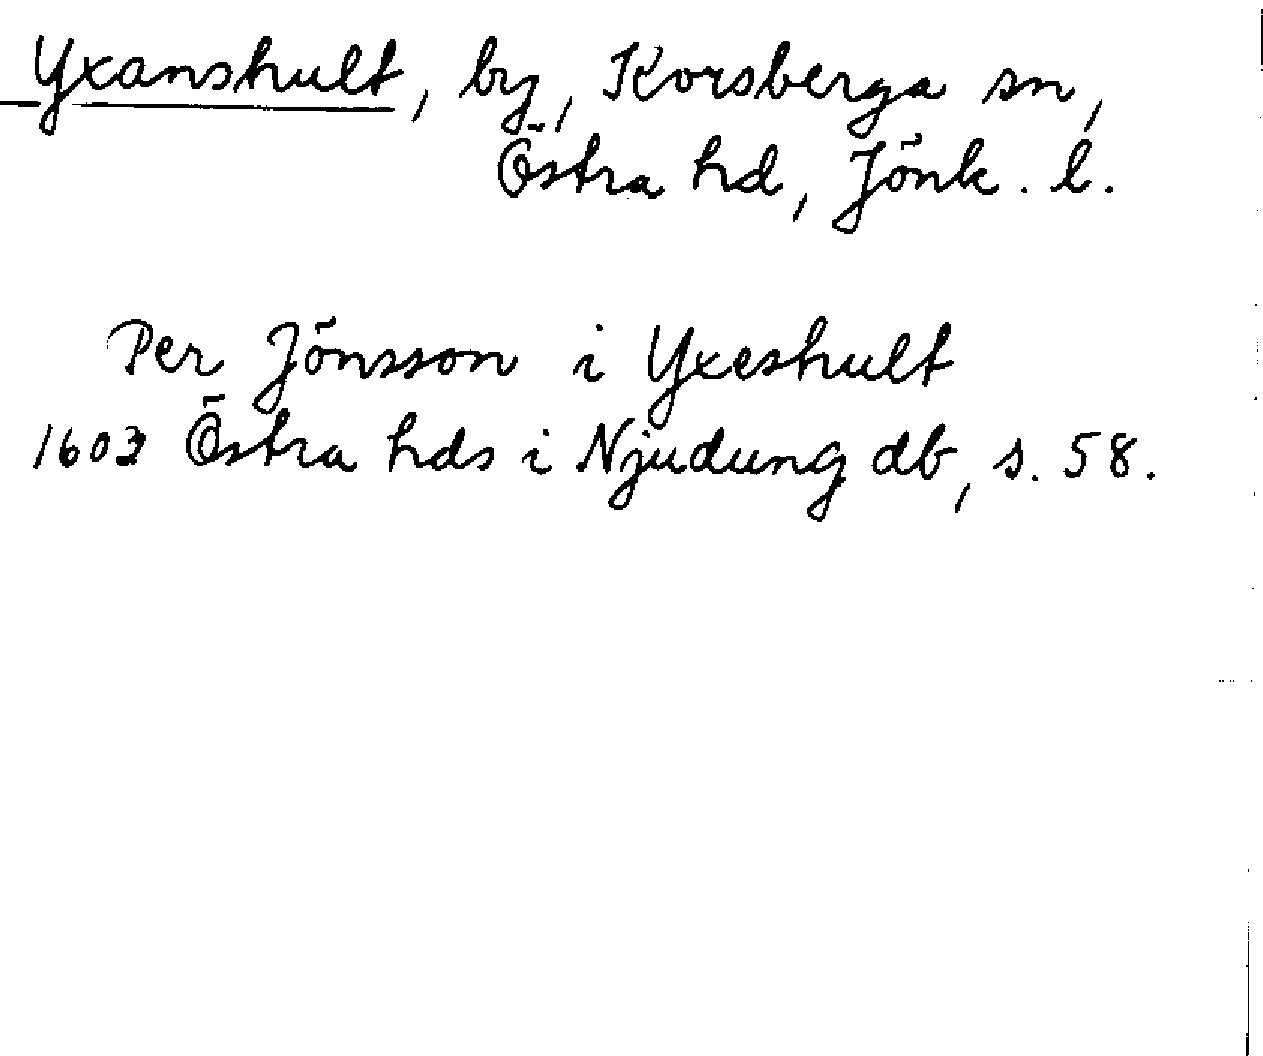 Yxanshult, by, Korsberga sn,
Östra hd, Jönk. l.
Per Jönsson i Yxeshult
1603 Östra hds i Njudung db, s. 58.